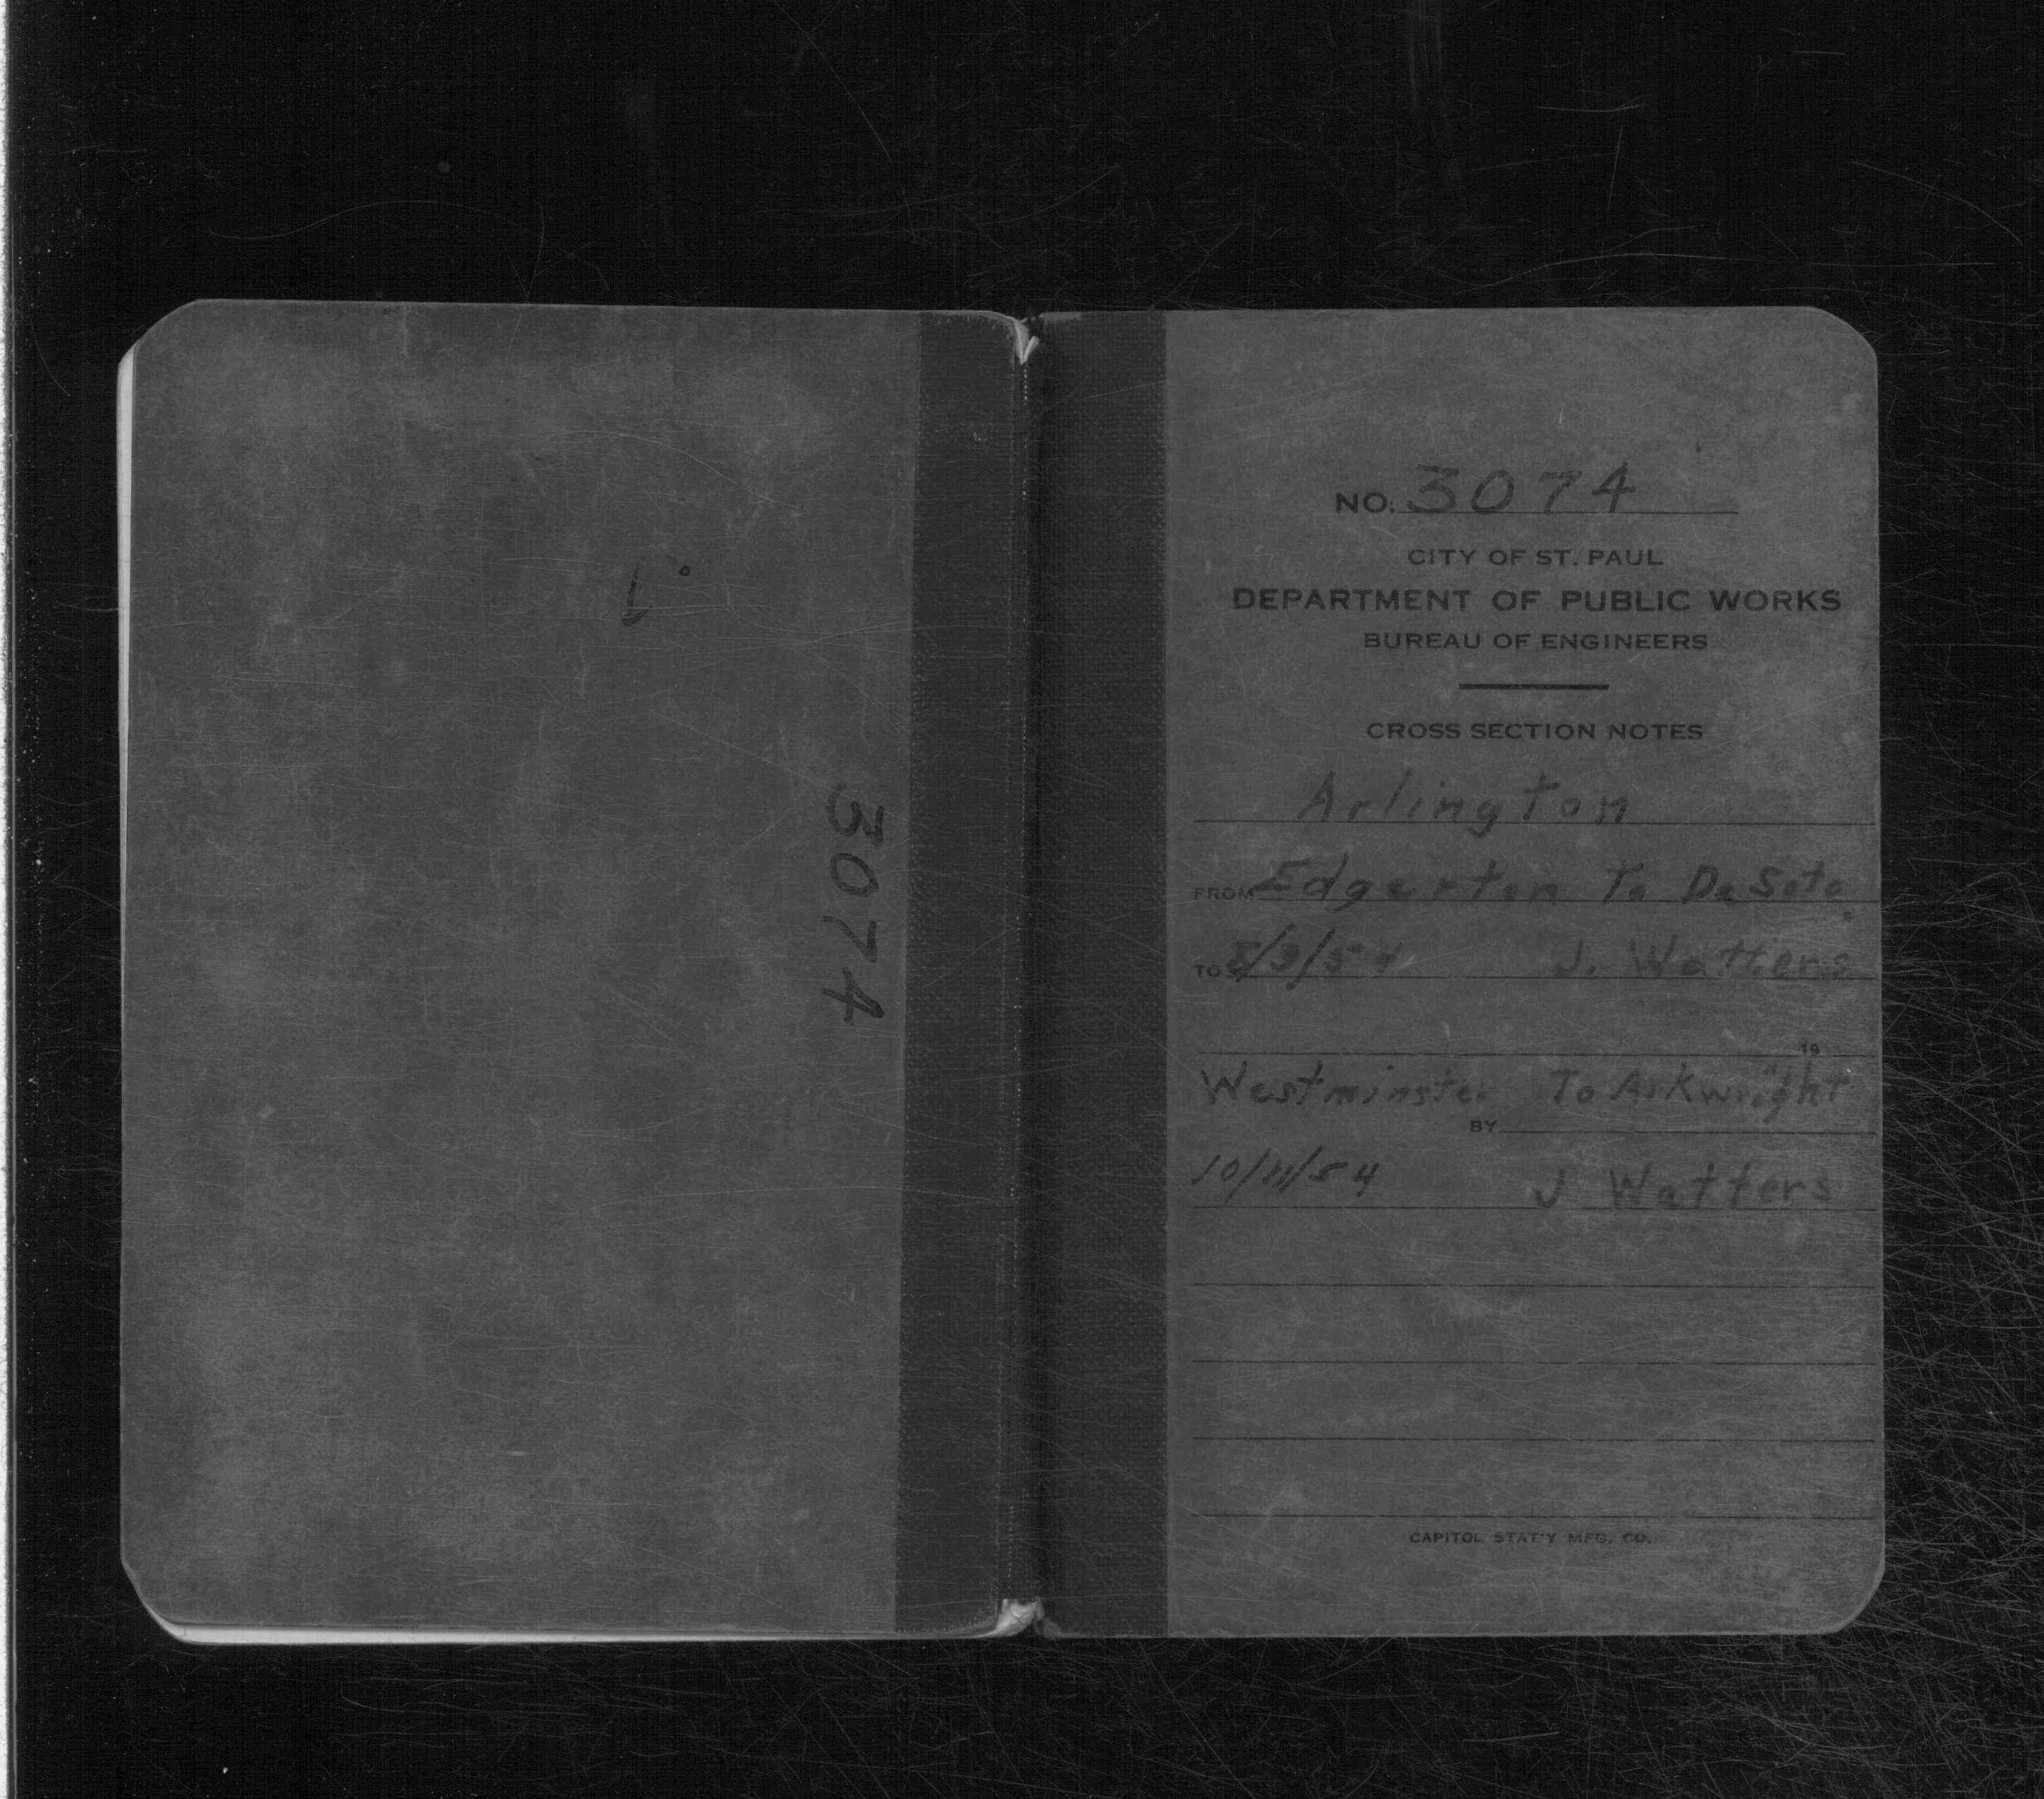 3074
NO. 3074
CITY OF ST. PAUL
DEPARTMENT OF PUBLIC WORKS
BUREAU OF ENGINEERS
CROSS SECTION NOTES
Arlington
FROM Edgerton To DeSoto
TO /3/54 J. Watters
19
Westminster To Arkwright
BY
10/11/54 J Watters
CAPITOL STAT'Y MFG. CO.